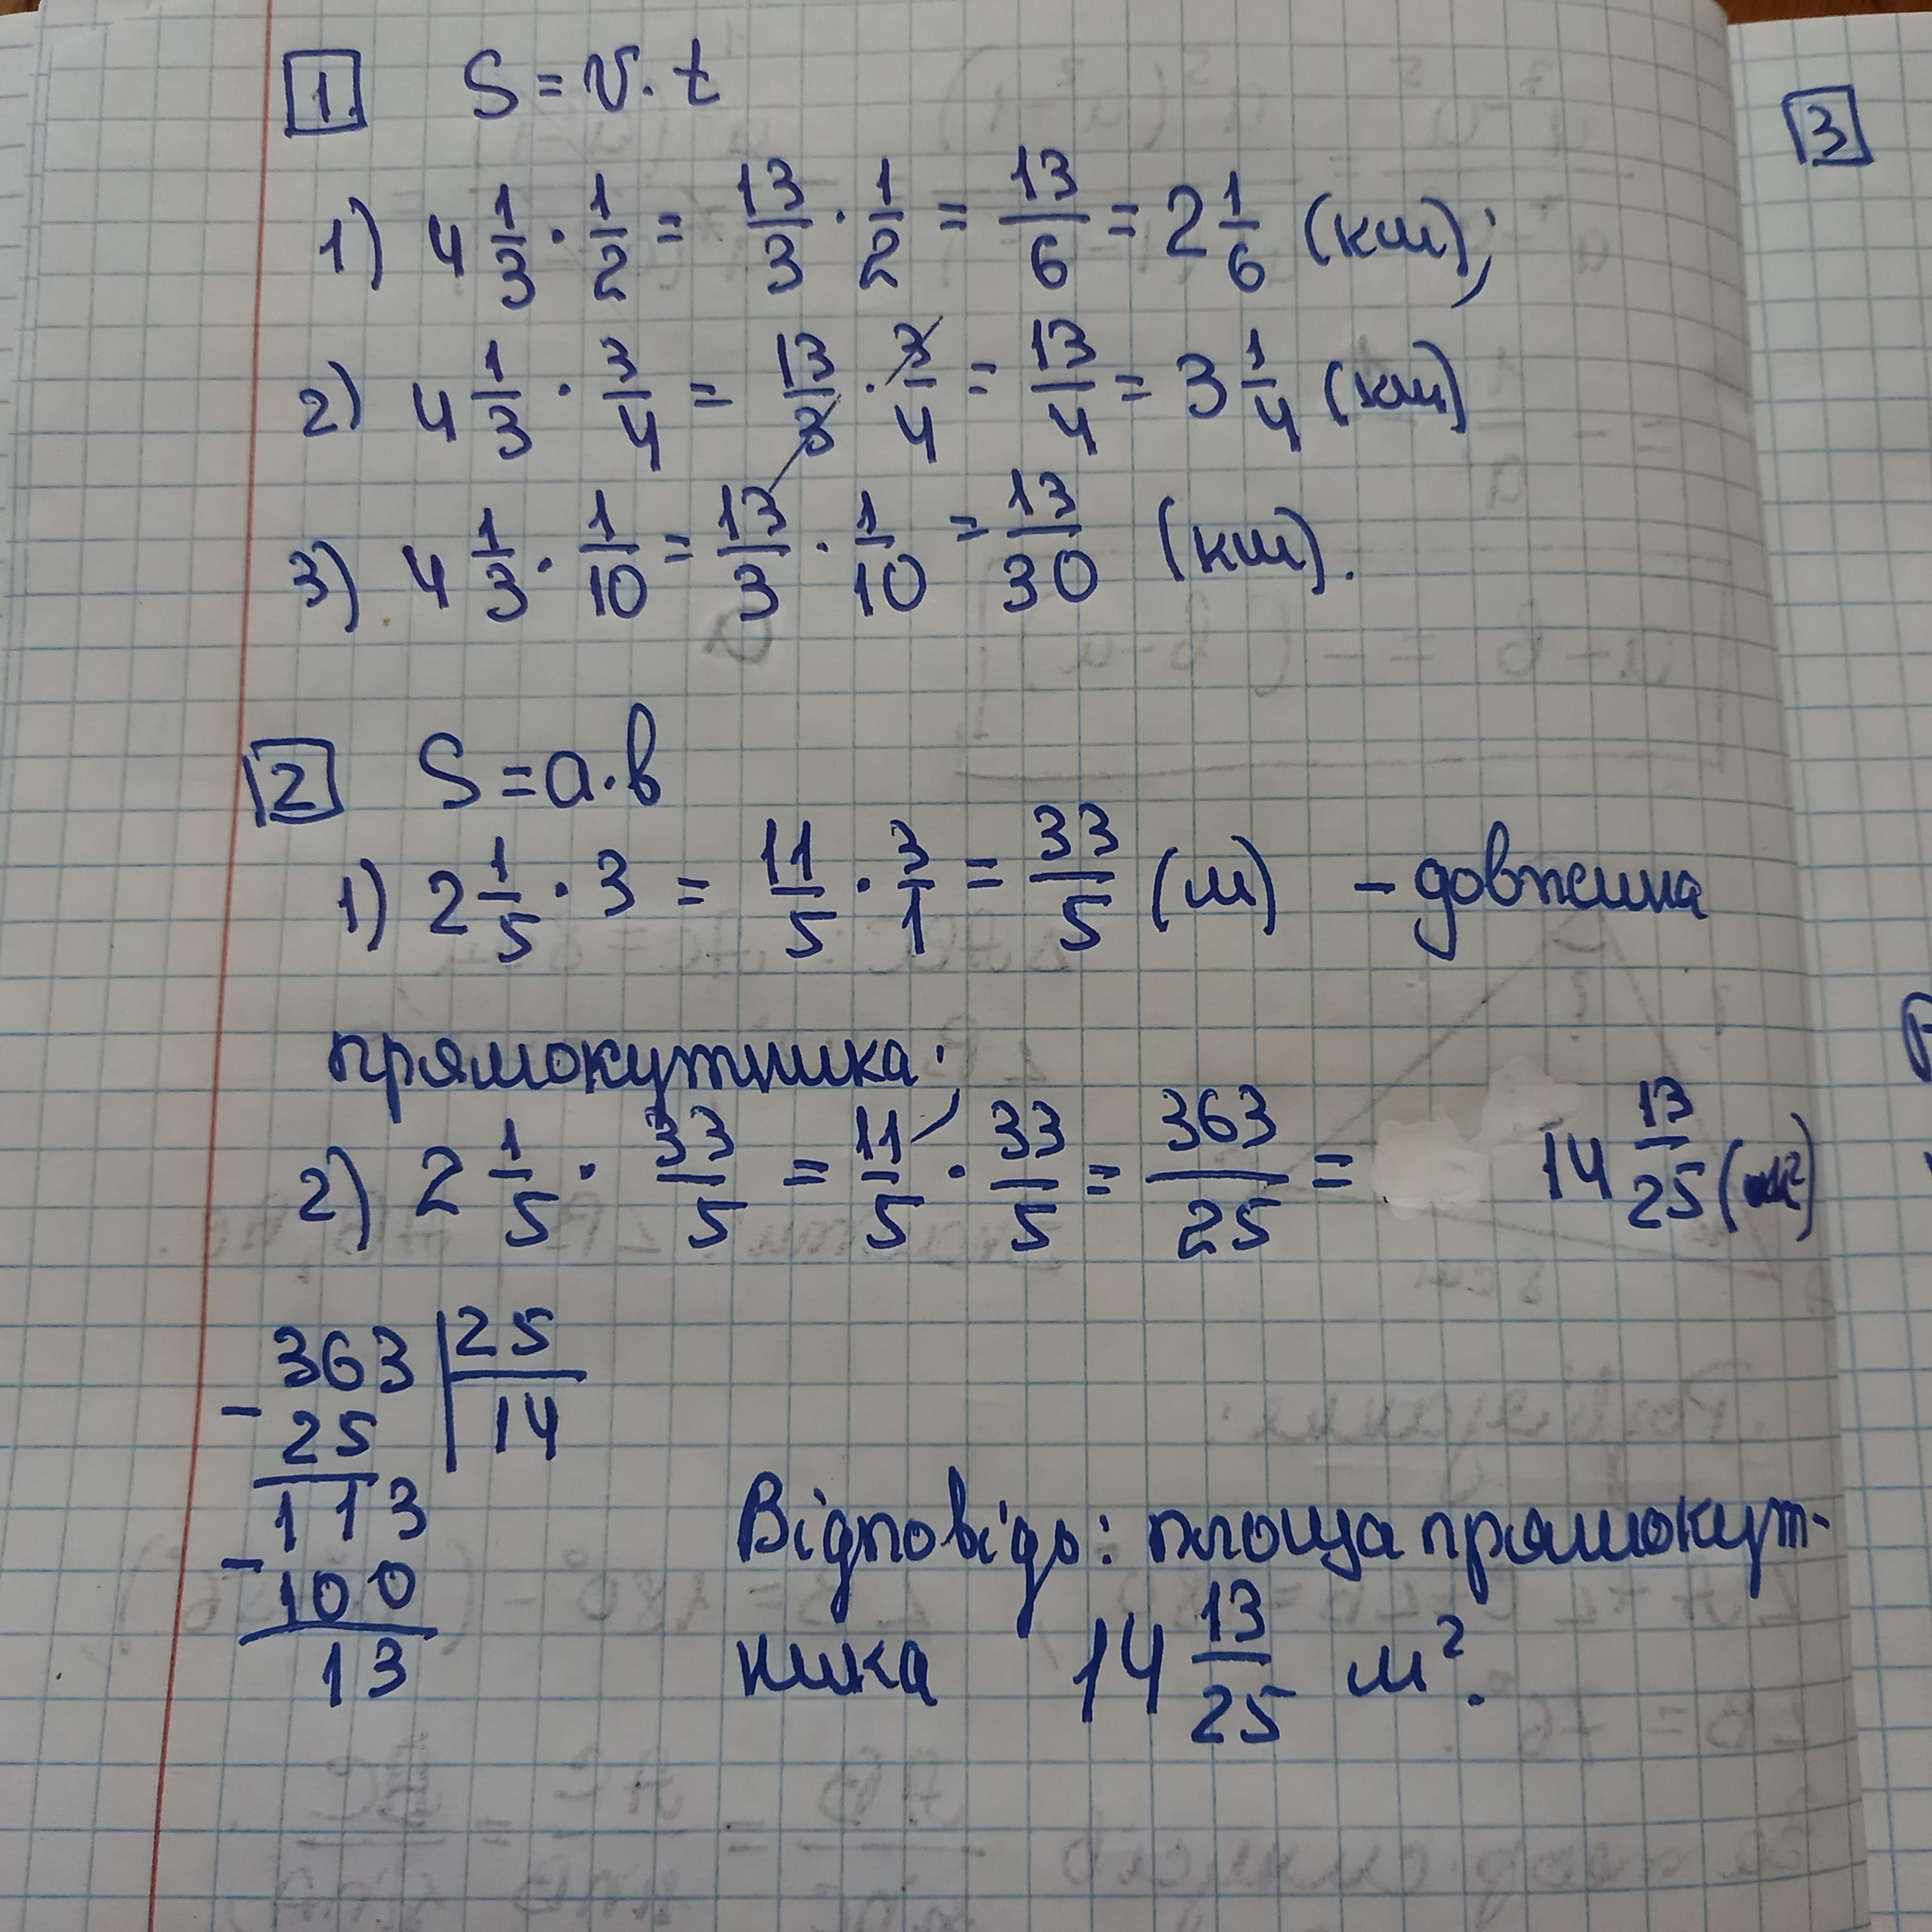 1 S = v · t
1) 4 1/3 · 1/2 = 13/3 · 1/2 = 13/6 = 2 1/6 (км);
2) 4 1/3 · 3/4 = 13/3 · 3/4 = 13/4 = 3 1/4 (км)
3) 4 1/3 · 1/10 = 13/3 · 1/10 = 13/30 (км).
2 S = a · b
1) 2 1/5 · 3 = 11/5 · 3/1 = 33/5 (м) - довжина
прямокутника;
2) 2 1/5 · 33/5 = 11/5 · 33/5 = 363/25 = 14 13/25 (м²)
363 | 25
- 25 | 14
113
- 100
13
Відповідь: площа прямокут-
ника 14 13/25 м².
3